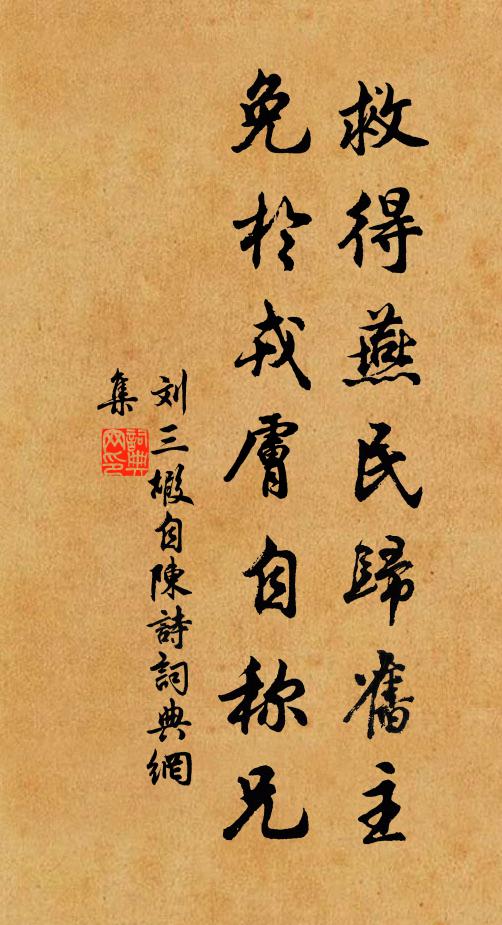 救得燕民歸舊主
免於戎膚自称兄
刘三椵自陳詩詞典網
集
詞典
网印